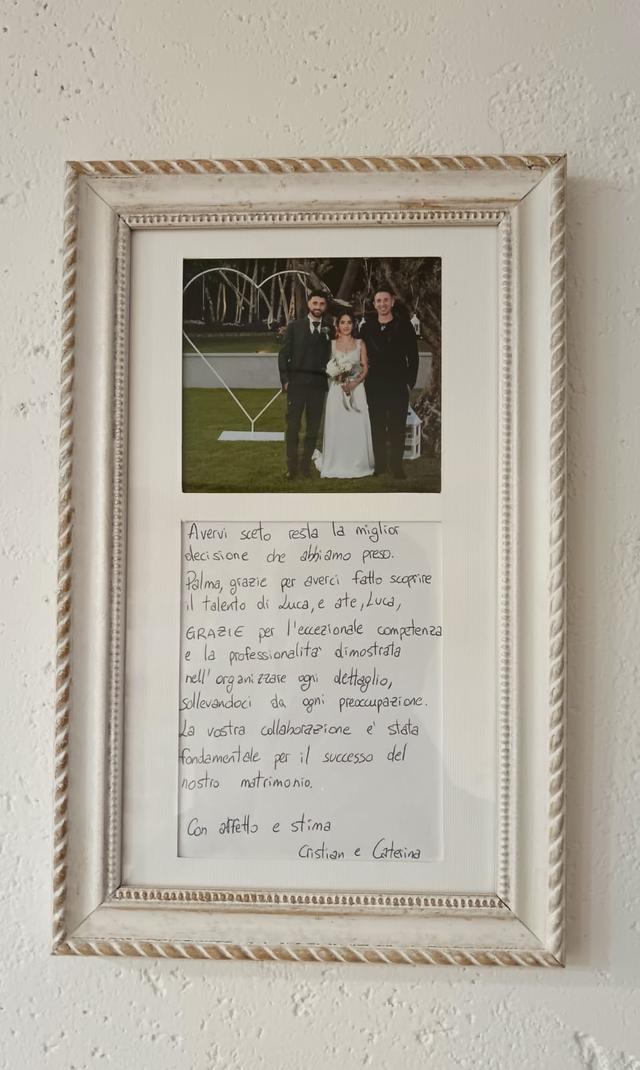 Avervi sceto resta la miglior
decisione che abbiamo preso.
Palma, grazie per averci fatto scoprire
il talento di Luca, e ate, Luca,
GRAZIE per l'eccezionale competenza
e la professionalità dimostrata
nell'organizzare ogni dettaglio,
sollevandoci da ogni preoccupazione.
La vostra collaborazione e' stata
fondamentale per il successo del
nostro matrimonio.
Con affetto e stima
Cristian e Caterina